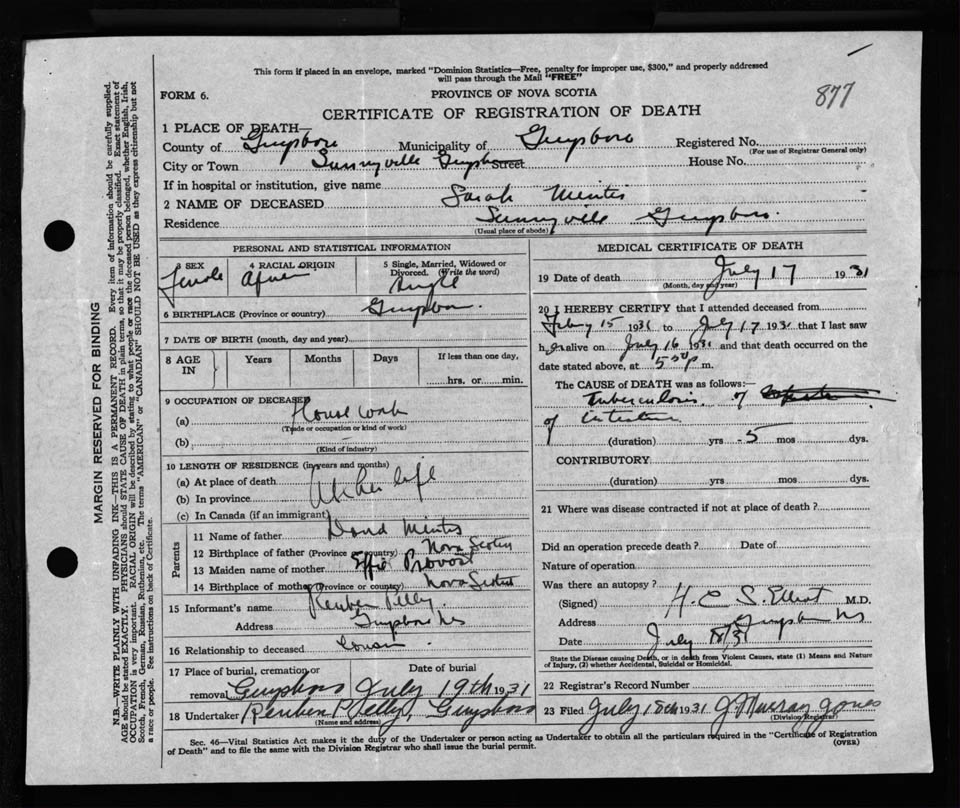 This form if placed in an envelope, marked "Dominion Statistics—Free, penalty for improper use, $300," and properly addressed
will pass through the Mail "FREE"
FORM 6.
PROVINCE OF NOVA SCOTIA
877
CERTIFICATE OF REGISTRATION OF DEATH
1 PLACE OF DEATH—
County of Guysboro Municipality of Guysboro Registered No.
(For use of Registrar General only)
City or Town Sunnyville Guysboro Street House No.
If in hospital or institution, give name
2 NAME OF DECEASED Sarah Mintis
Residence Sunnyville Guysboro.
(Usual place of abode)
PERSONAL AND STATISTICAL INFORMATION
3 SEX
Female
4 RACIAL ORIGIN
5 Single, Married, Widowed or
Divorced. (Write the word)
Single
6 BIRTHPLACE (Province or country) Guysboro.
7 DATE OF BIRTH (month, day and year)
8 AGE
IN
Years Months Days If less than one day,
hrs. or min.
9 OCCUPATION OF DECEASED
(a) House work
(Trade or occupation or kind of work)
(b)
(Kind of industry)
10 LENGTH OF RESIDENCE (in years and months)
(a) At place of death
(b) In province All her life
(c) In Canada (if an immigrant)
Parents
11 Name of father David Mintis
12 Birthplace of father (Province or country) Nova Scotia
13 Maiden name of mother Effie Provost
14 Birthplace of mother (Province or country) Nova Scotia
15 Informant's name Reuben Pelley
Address Guysboro NS
16 Relationship to deceased Cousin
17 Place of burial, cremation or
removal Guysboro
Date of burial
July 19th 1931
18 Undertaker Reuben Pelley, Guysboro
(Name and address)
MEDICAL CERTIFICATE OF DEATH
19 Date of death July 17 1931
(Month, day and year)
20 I HEREBY CERTIFY that I attended deceased from
15 1931 to July 17 1931 that I last saw
her alive on July 16 1931 and that death occurred on the
date stated above, at 5 p m.
The CAUSE of DEATH was as follows:—
Tuberculosis of
of intestine
(duration) yrs 5 mos dys.
CONTRIBUTORY
(duration) yrs. mos. dys.
21 Where was disease contracted if not at place of death?
Did an operation precede death? Date of
Nature of operation
Was there an autopsy?
(Signed) H. C. S. Elliot M.D.
Address Guysboro NS
Date July 18/31
State the Disease causing Death, or in death from Violent Causes, state (1) Means and Nature
of Injury, (2) whether Accidental, Suicidal or Homicidal.
22 Registrar's Record Number
23 Filed July 18th 1931 J Murray Jones
(Division Registrar)
Sec. 46—Vital Statistics Act makes it the duty of the Undertaker or person acting as Undertaker to obtain all the particulars required in the "Certificate of Registration
of Death" and to file the same with the Division Registrar who shall issue the burial permit.
(OVER)
MARGIN RESERVED FOR BINDING
N.B.—WRITE PLAINLY WITH UNFADING INK—THIS IS A PERMANENT RECORD. Every item of information should be carefully supplied.
AGE should be stated EXACTLY. PHYSICIANS should STATE CAUSE OF DEATH in plain terms, so that it may be properly classified. Exact statement of
OCCUPATION is very important. RACIAL ORIGIN will be described by stating to what people or race the deceased person belonged, whether English, Irish,
Scotch, French, German, Russian, Ruthenian, etc. The terms "AMERICAN" or "CANADIAN" SHOULD NOT BE USED as they express citizenship but not
a race or people. See instructions on back of Certificate.